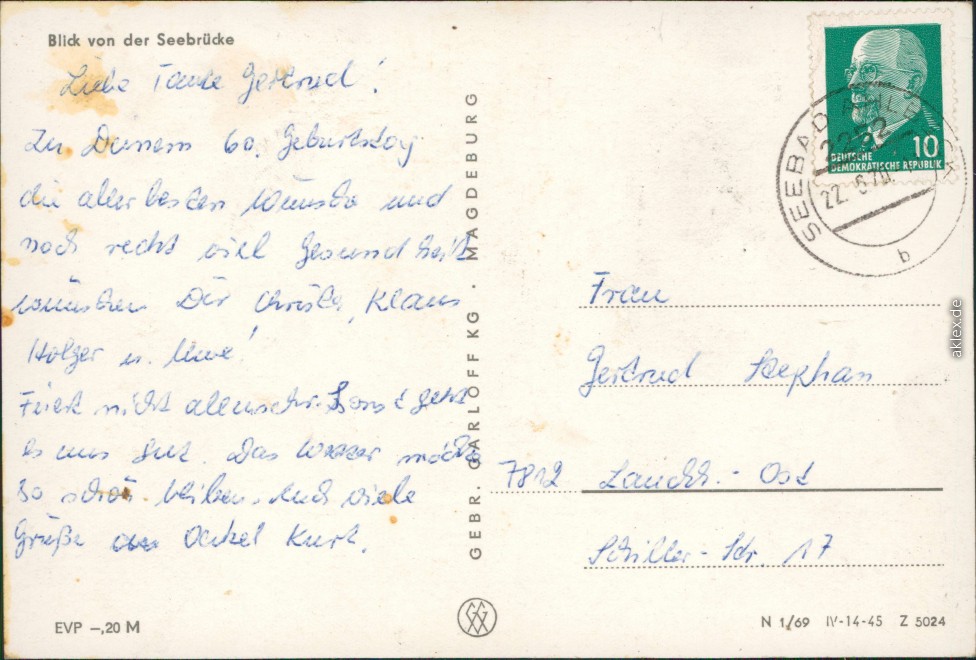 Blick von der Seebrücke
Liebe Tante Gertrud!
Zu Deinem 60. Geburtstag
die allerbesten Wünsche und
noch recht viel Gesundheit
wünschen Dir Christa, Klaus
Holger u. Uwe!
Feiert nicht allzusehr. Sonst geht
es uns gut. Das Wetter möchte
so schön bleiben. Auch viele
Grüße an Onkel Kurt.
GEBR. GARLOFF KG · MAGDEBURG
DEUTSCHE
DEMOKRATISCHE REPUBLIK
10
SEEBAD AHLBECK
2252
22. 6.70
b
Frau
Gertrud Stephan
7812 Lauchh.-Ost
Schiller-Str. 17
EVP –,20 M
N 1/69 IV-14-45 Z 5024
aklex.de